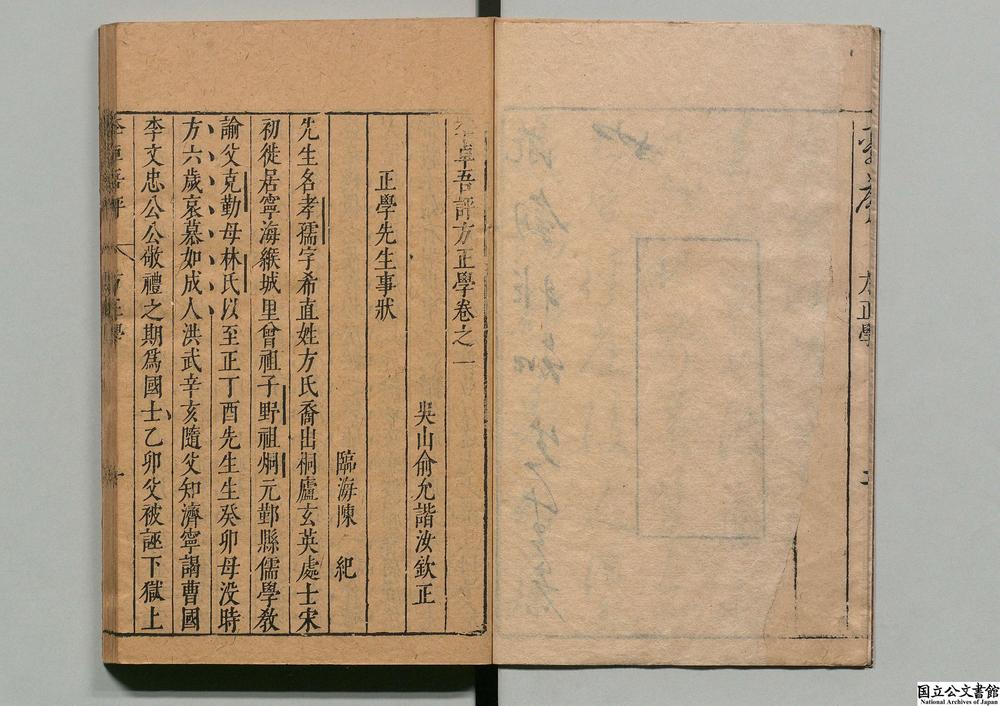 方正學
李卓吾評方正學卷之一
吳山俞允諧汝欽正
正學先生事狀
臨海陳 紀
先生名孝孺字希直姓方氏喬出桐廬玄英處士宋
初徙居寧海緱城里曾祖子野祖炯元鄞縣儒學教
諭父克勤母林氏以至正丁酉先生生癸卯母没時
方六歲哀慕如成人洪武辛亥隨父知濟寧謁曹國
李文忠公公敬禮之期爲國士乙卯父被誣下獄上
國立公文書館
National Archives of Japan